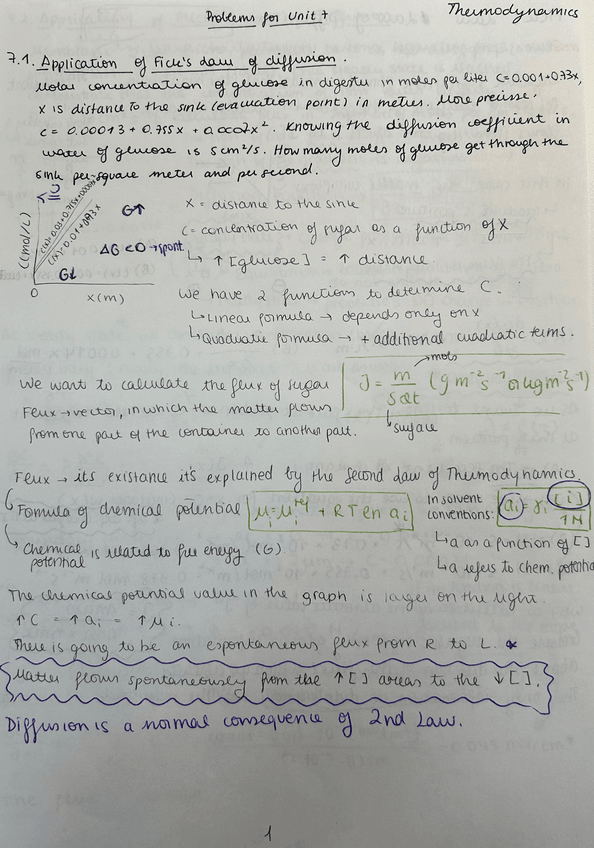 Problems for Unit 7
Thermodynamics
7.1. Application of Fick's law of diffusion.
Molar concentration of glucose in digester in moles per liter C=0.001+0.73x,
x is distance to the sink (evacuation point) in meter. More precise.
C = 0.00013 + 0.755x + 0.0002x². Knowing the diffusion coefficient in
water of glucose is 5cm²/s. How many moles of glucose get through the
sink per square meter and per second.
J
C(mol/L)
C(x)=0.01+0.73x
G↑
ΔG<0 → spont.
G↓
0
x(m)
x = distance to the sink
C = concentration of sugar as a function of x
↳ ↑ [glucose] = ↑ distance
We have 2 functions to determine C.
↳ Linear formula → depends only on x
↳ Quadratic formula → + additional cuadratic terms.
We want to calculate the flux of sugar
Flux → vector, in which the matter flows
from one part of the container to another part.
mols
J = m / S Δt (g m⁻² s⁻¹ or kg m⁻² s⁻¹)
↳ surface
Flux → its existance it's explained by the second law of Thermodynamics
Formula of chemical potential μi = μi + RT ln ai
In solvent conventions: ai = γi [i] / 1M
↳ a as a function of [ ]
↳ a refers to chem. potential
Chemical potential is related to free energy (G)
The chemical potential value in the graph is larger on the right.
↑ C = ↑ ai = ↑ μi.
There is going to be an espontaneous flux from R to L. *
Matter flows spontaneously from the ↑[ ] areas to the ↓[ ].
Diffusion is a normal consequence of 2nd Law.
1